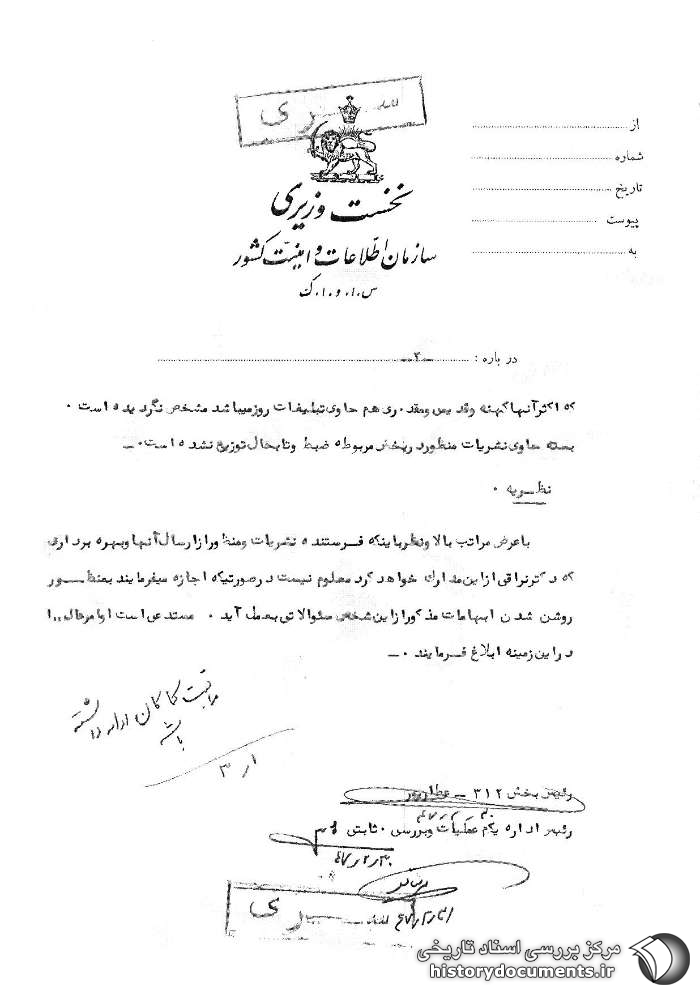 سری
نخست وزیری
سازمان اطلاعات و امنیت کشور
س.ا.و.ا.ک
از
شماره
تاریخ
پیوست
به
درباره : ـ۲ـ
که اکثر آنها کهنه وقدیمی ومقداری هم حاوی تبلیغات روز میباشد مشخص نگردیده است .
بسته حاوی نشریات منظور در بخش مربوطه ضبط وتابحال توزیع نشده است .ـ
نظریه .
باعرض مراتب بالا ونظر باینکه فرستنده نشریات ومنظور از ارسال آنها وبهره برداری
که دکتر نراقی از این مدارک خواهد کرد معلوم نیست در صورتیکه اجازه میفرمایند بمنظور
روشن شدن ابهامات مذکور از این شخص سئوالاتی بعمل آید . مستدعی است اوامر عالی را
در این زمینه ابلاغ فرمایند .ـ
مراقبت کماکان ادامه داشته
باشد
۳
رئیس بخش ۳۱۲ ـ عطارپور
رئیس اداره یکم عملیات وبررسی . ثابتی
سری
مرکز بررسی اسناد تاریخی
historydocuments.ir